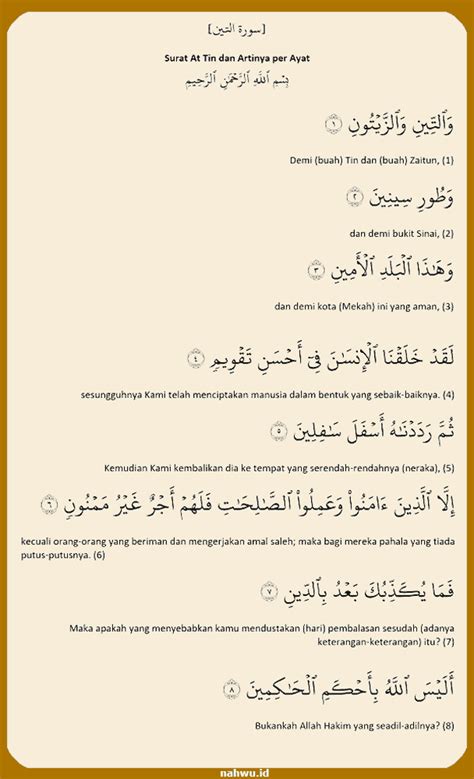 [سورة التين]
Surat At Tin dan Artinya per Ayat
بِسْمِ ٱللَّهِ ٱلرَّحْمَٰنِ ٱلرَّحِيمِ
وَٱلتِّينِ وَٱلزَّيْتُونِ ١
Demi (buah) Tin dan (buah) Zaitun, (1)
وَطُورِ سِينِينَ ٢
dan demi bukit Sinai, (2)
وَهَٰذَا ٱلْبَلَدِ ٱلْأَمِينِ ٣
dan demi kota (Mekah) ini yang aman, (3)
لَقَدْ خَلَقْنَا ٱلْإِنسَٰنَ فِىٓ أَحْسَنِ تَقْوِيمٍ ٤
sesungguhnya Kami telah menciptakan manusia dalam bentuk yang sebaik-baiknya. (4)
ثُمَّ رَدَدْنَٰهُ أَسْفَلَ سَٰفِلِينَ ٥
Kemudian Kami kembalikan dia ke tempat yang serendah-rendahnya (neraka), (5)
إِلَّا ٱلَّذِينَ ءَامَنُوا۟ وَعَمِلُوا۟ ٱلصَّٰلِحَٰتِ فَلَهُمْ أَجْرٌ غَيْرُ مَمْنُونٍ ٦
kecuali orang-orang yang beriman dan mengerjakan amal saleh; maka bagi mereka pahala yang tiada
putus-putusnya. (6)
فَمَا يُكَذِّبُكَ بَعْدُ بِٱلدِّينِ ٧
Maka apakah yang menyebabkan kamu mendustakan (hari) pembalasan sesudah (adanya
keterangan-keterangan) itu? (7)
أَلَيْسَ ٱللَّهُ بِأَحْكَمِ ٱلْحَٰكِمِينَ ٨
Bukankah Allah Hakim yang seadil-adilnya? (8)
nahwu.id